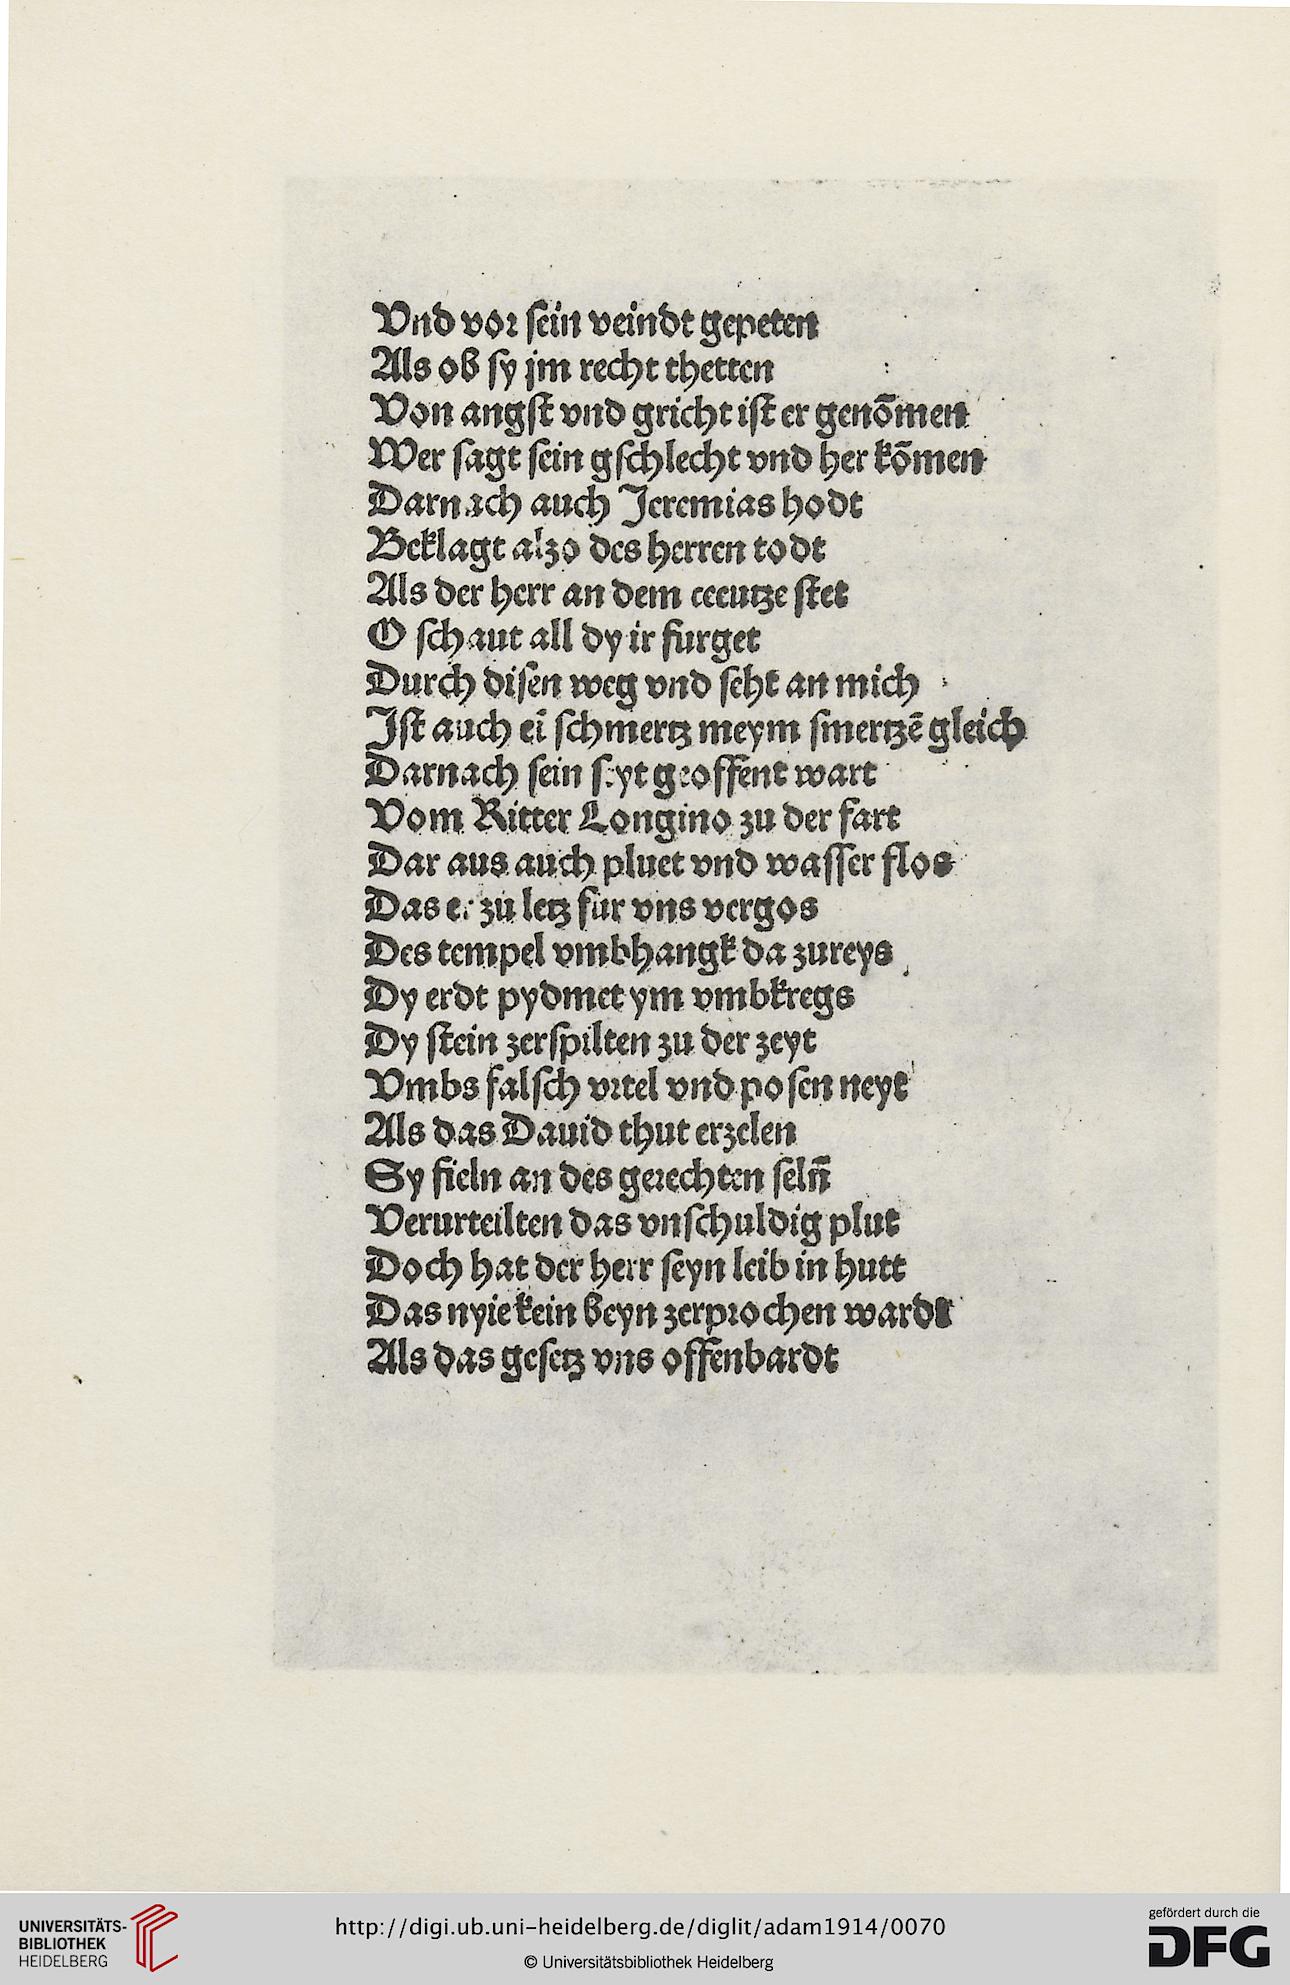 Vnd vor sein veindt gepeten
Als ob sy jm recht thetten
Von angst vnd gricht ist er genōmen
Wer sagt sein gschlecht vnd her kōmen
Darnach auch Jeremias hodt
Beklagt alzo des herren todt
Als der herr an dem ceeutze stet
O schaut all dy ir furget
Durch disen weg vnd seht an mich
Ist auch eī schmertz meym smertzē gleich
Darnach sein seyt geoffent wart
Vom Ritter Longino zu der fart
Dar aus auch pluet vnd wasser flos
Das er zu letz fur vns vergos
Des tempel vmbhangk da zureys
Dy erdt pydmet ym vmbkregs
Dy stein zerspilten zu der zeyt
Vmbs falsch vrtel vnd posen neyt
Als das Dauid thut erzelen
Sy fieln an des gerechten seln̄
Verurteilten das vnschuldig plut
Doch hat der herr seyn leib in hutt
Das nyie kein beyn zerprochen wardt
Als das gesetz vns offenbardt
UNIVERSITÄTS-
BIBLIOTHEK
HEIDELBERG
http://digi.ub.uni-heidelberg.de/diglit/adam1914/0070
© Universitätsbibliothek Heidelberg
gefördert durch die
DFG